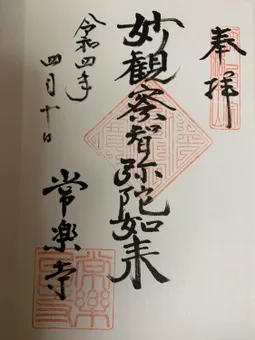 奉拝
妙觀察智弥陀如来
常楽寺
令和四年
四月十日